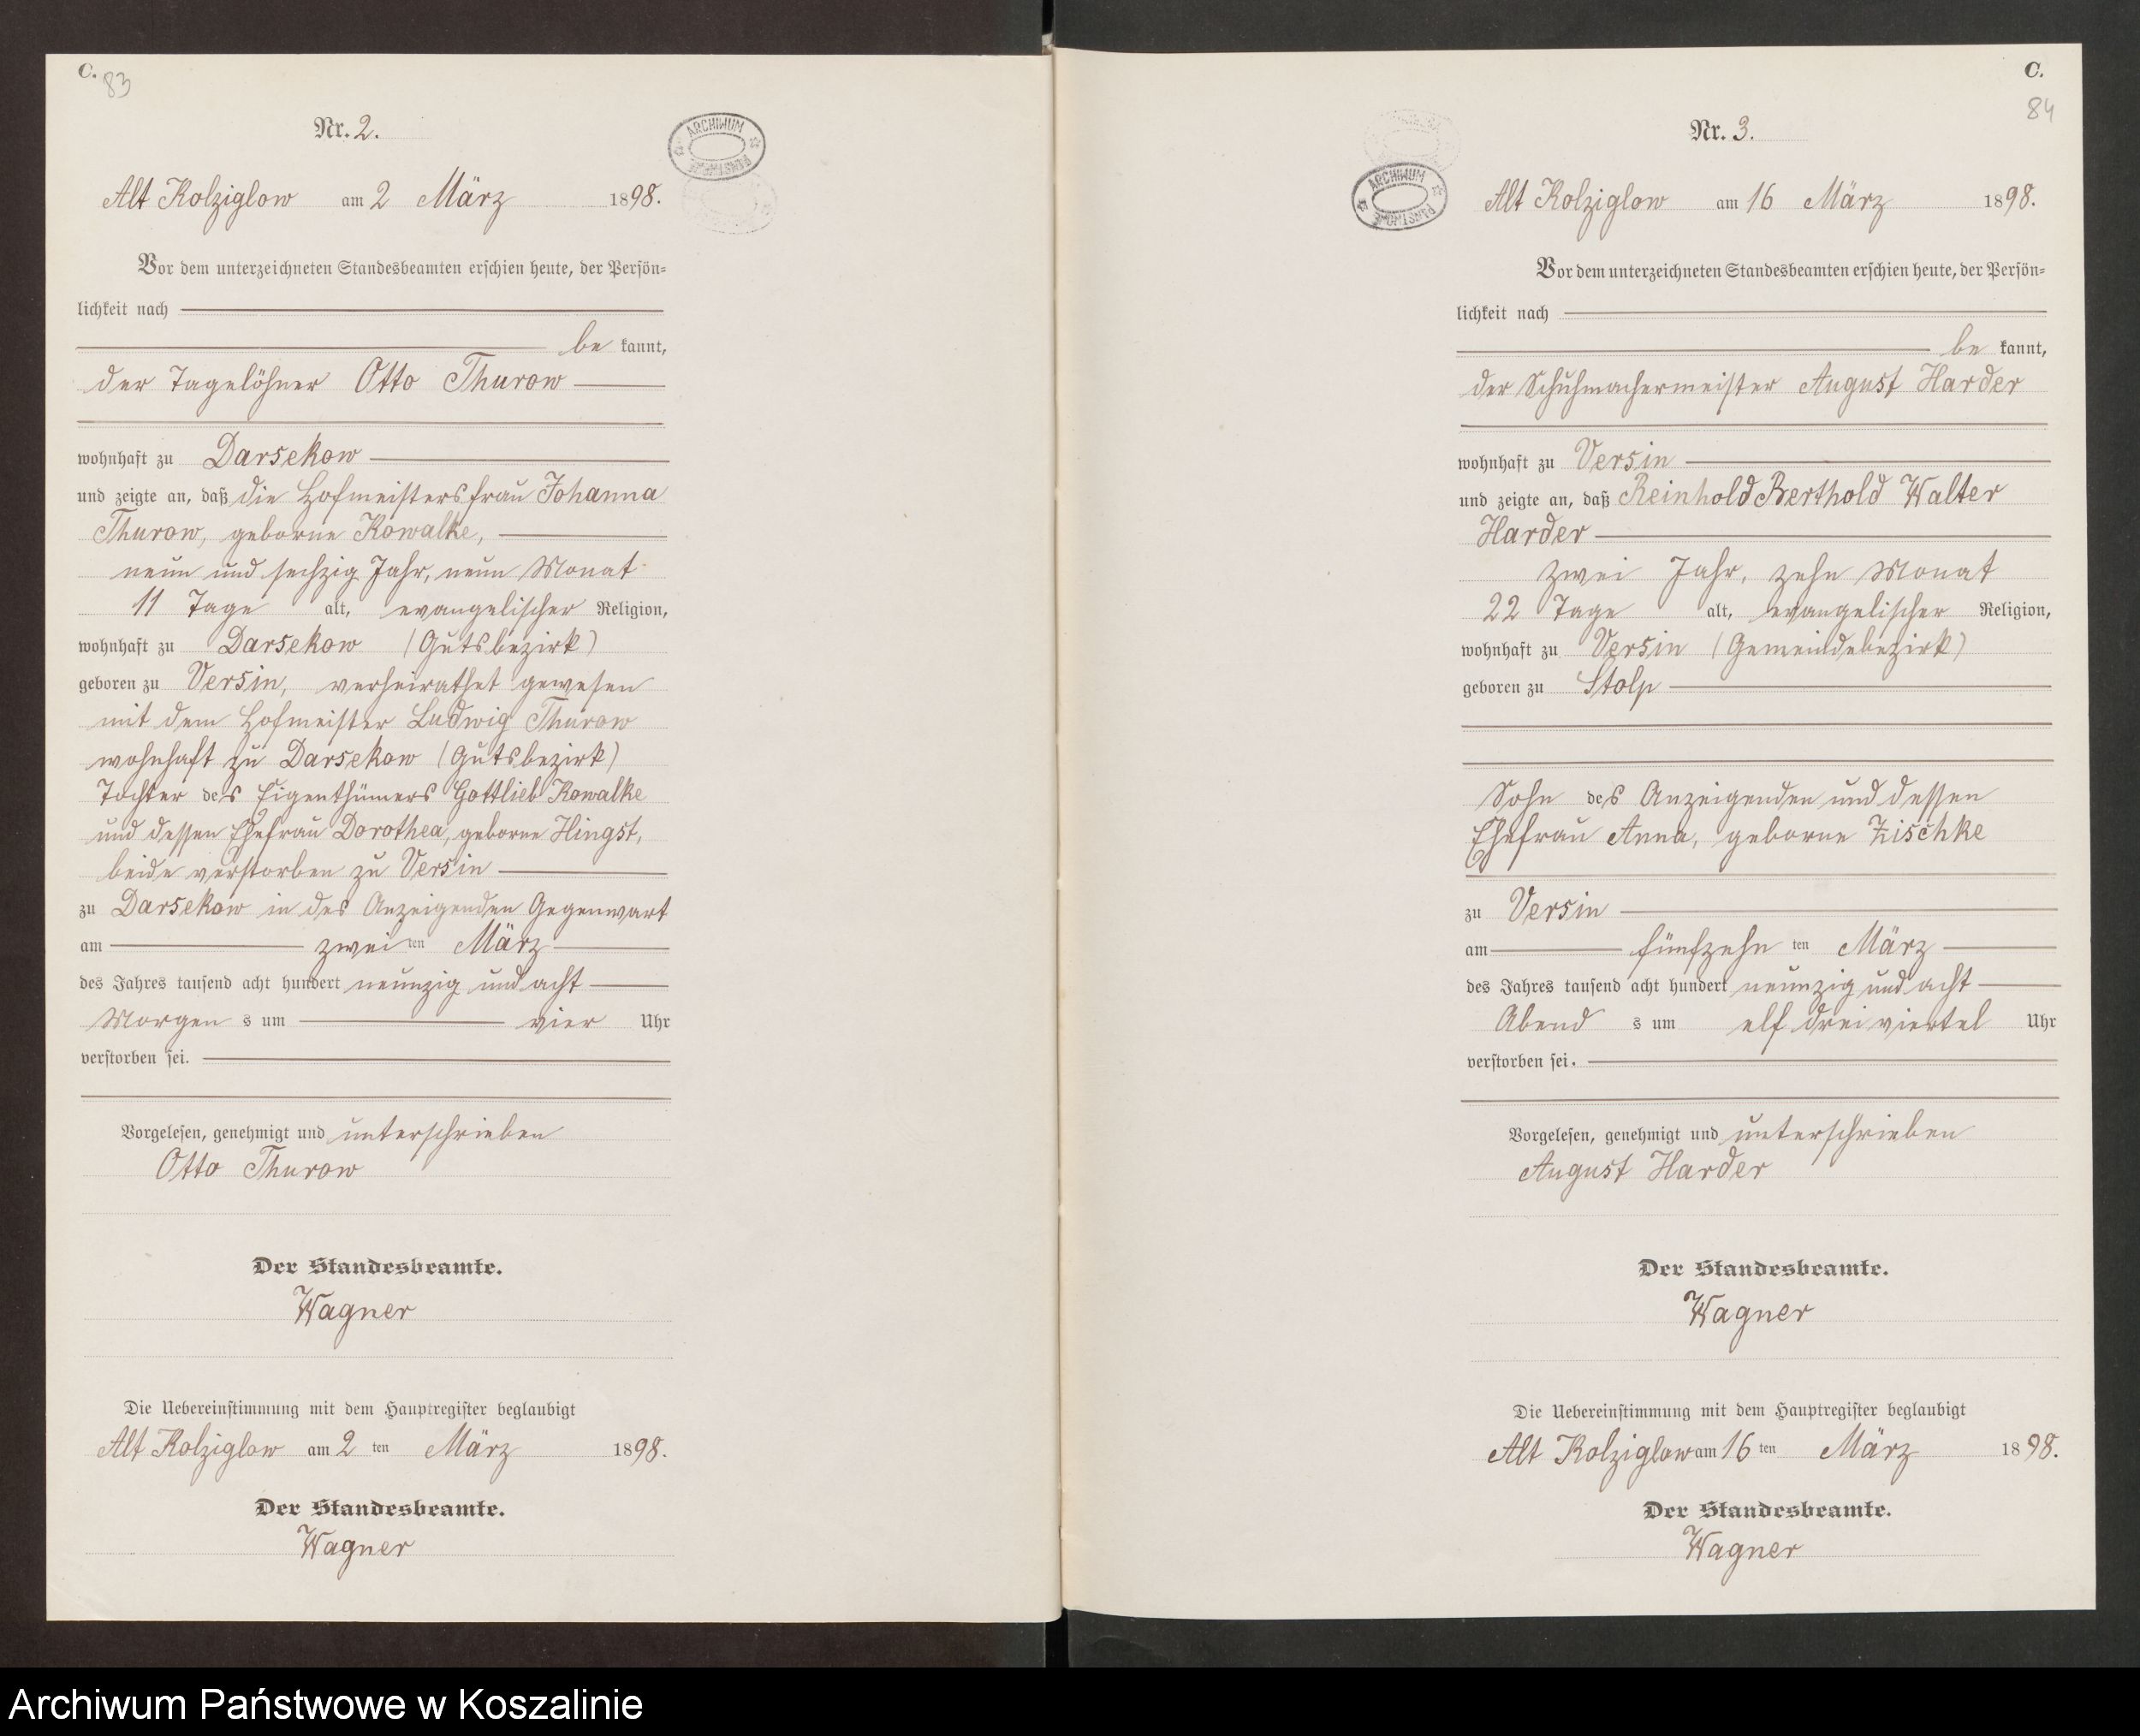 C.
83
Nr. 2.
ARCHIWUM PAŃSTWOWE
Alt Kolziglow am 2 März 1898.
Vor dem unterzeichneten Standesbeamten erschien heute, der Persön-
lichkeit nach
be kannt,
der Tagelöhner Otto Thurow
wohnhaft zu Darsekow
und zeigte an, daß die Hofmeistersfrau Johanna
Thurow, geborne Kowalke,
neun und sechzig Jahr, neun Monat
11 Tage alt, evangelischer Religion,
wohnhaft zu Darsekow (Gutsbezirk)
geboren zu Versin, verheirathet gewesen
mit dem Hofmeister Ludwig Thurow
wohnhaft zu Darsekow (Gutsbezirk)
Tochter des Eigenthümers Gottlieb Kowalke
und dessen Ehefrau Dorothea, geborne Hingst,
beide verstorben zu Versin
zu Darsekow in des Anzeigenden Gegenwart
am zwei ten März
des Jahres tausend acht hundert neunzig und acht
Morgen s um vier Uhr
verstorben sei.
Vorgelesen, genehmigt und unterschrieben
Otto Thurow
Der Standesbeamte.
Wagner
Die Uebereinstimmung mit dem Hauptregister beglaubigt
Alt Kolziglow am 2 ten März 1898.
Der Standesbeamte.
Wagner
C.
84
Nr. 3.
ARCHIWUM PAŃSTWOWE
Alt Kolziglow am 16 März 1898.
Vor dem unterzeichneten Standesbeamten erschien heute, der Persön-
lichkeit nach
be kannt,
der Schuhmachermeister August Harder
wohnhaft zu Versin
und zeigte an, daß Reinhold Berthold Walter
Harder
zwei Jahr, zehn Monat
22 Tage alt, evangelischer Religion,
wohnhaft zu Versin (Gemeindebezirk)
geboren zu Stolp
Sohn des Anzeigenden und dessen
Ehefrau Anna, geborne Zischke
zu Versin
am fünfzehn ten März
des Jahres tausend acht hundert neunzig und acht
Abend s um elf drei viertel Uhr
verstorben sei.
Vorgelesen, genehmigt und unterschrieben
August Harder
Der Standesbeamte.
Wagner
Die Uebereinstimmung mit dem Hauptregister beglaubigt
Alt Kolziglow am 16 ten März 1898.
Der Standesbeamte.
Wagner
Archiwum Państwowe w Koszalinie